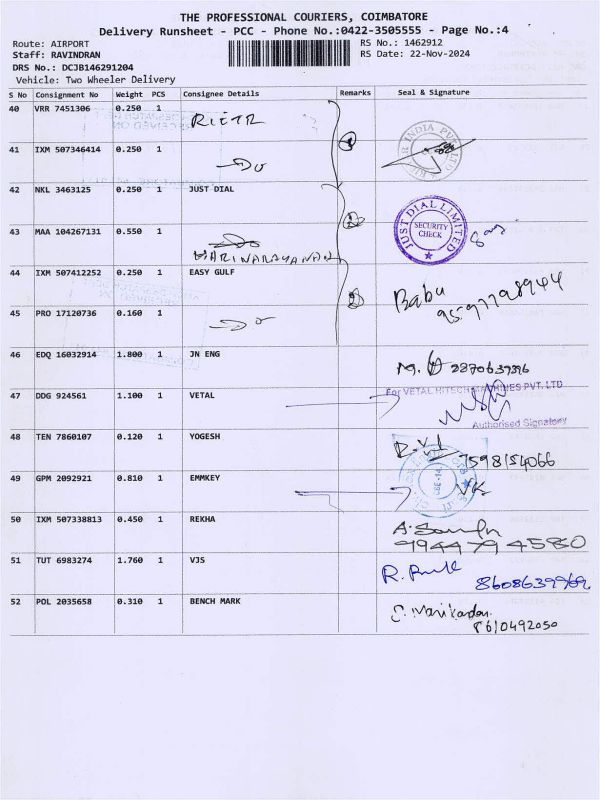 THE PROFESSIONAL COURIERS, COIMBATORE
Delivery Runsheet - PCC - Phone No.:0422-3505555 - Page No.:4
Route: AIRPORT
RS No.: 1462912
Staff: RAVINDRAN
RS Date: 22-Nov-2024
DRS No.: DCJB146291204
Vehicle: Two Wheeler Delivery
S No Consignment No Weight PCS Consignee Details Remarks Seal & Signature
40 VRR 7451306 0.250 1
41 IXM 507346414 0.250 1 Do
42 NKL 3463125 0.250 1 JUST DIAL
JUST DIAL LIMITED
SECURITY CHECK
43 MAA 104267131 0.550 1
HARINARAYANAN
44 IXM 507412252 0.250 1 EASY GULF
Babu
9597798944
45 PRO 17120736 0.160 1 Do
46 EDQ 16032914 1.800 1 JN ENG
47 DDG 924561 1.100 1 VETAL
For VETAL HITECH MACHINES PVT. LTD
Authorised Signatory
48 TEN 7860107 0.120 1 YOGESH
7598154066
49 GPM 2092921 0.810 1 EMMKEY
50 IXM 507338813 0.450 1 REKHA
9944794580
51 TUT 6983274 1.760 1 VJS
8608639969
52 POL 2035658 0.310 1 BENCH MARK
S. Manikandan
8610492050